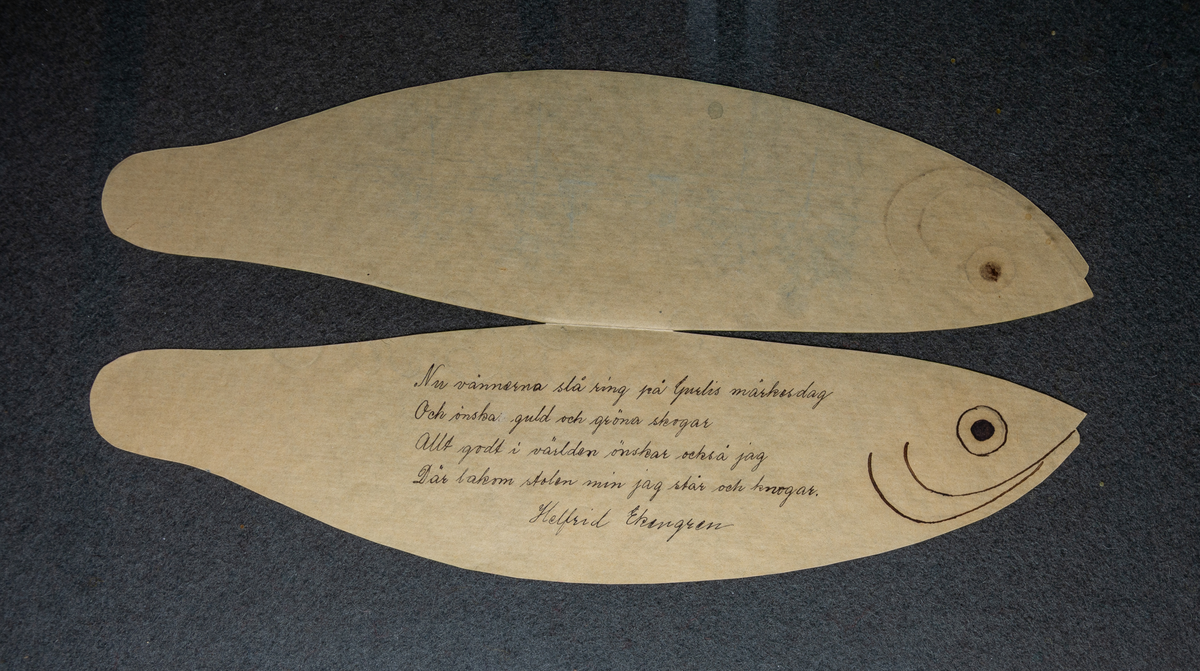 Nu vännerna slå ring på Gurlis märkesdag
Och önska guld och gröna skogar
Allt godt i världen önskar också jag
Där bakom stolen min jag står och knogar.
Helfrid Ekengren